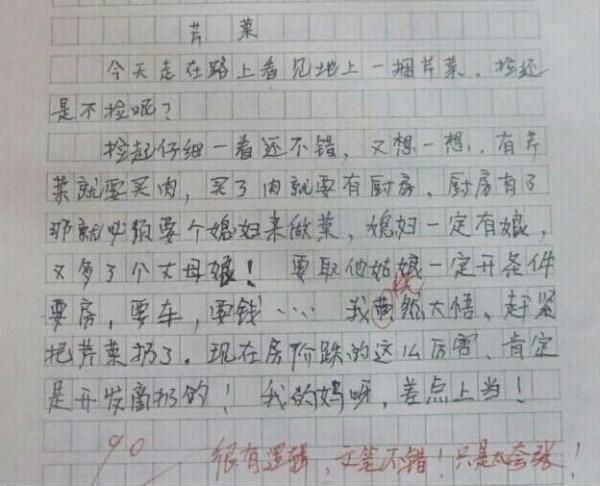 芹菜
今天走在路上看见地上一捆芹菜，捡还
是不捡呢？
捡起仔细一看还不错，又想一想，有芹
菜就要买肉，买了肉就要有厨房、厨房有了
那就必须要个媳妇来做菜，媳妇一定有娘，
又多了个丈母娘！要取他姑娘一定开条件
要房，要车，要钱……我黄然大悟、赶紧
恍
把芹菜扔了。现在房价跌的这么厉害、肯定
是开发商扔的！我的妈呀，差点上当！
90
很有逻辑，文笔不错！只是太夸张！